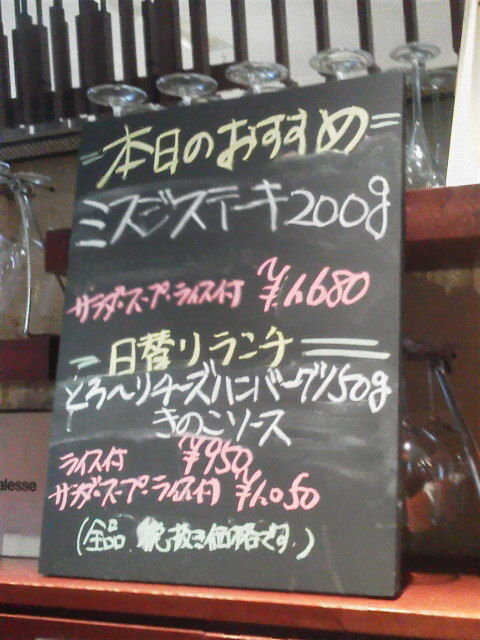 =本日のおすすめ=
ミスジステーキ200g
サラダ・スープ・ライス付 ¥1,680
日替りランチ
とろ〜りチーズハンバーグ150g
きのこソース
ライス付 ¥950
サラダ・スープ・ライス付 ¥1,050
(全品 税抜き価格です。)
alesse